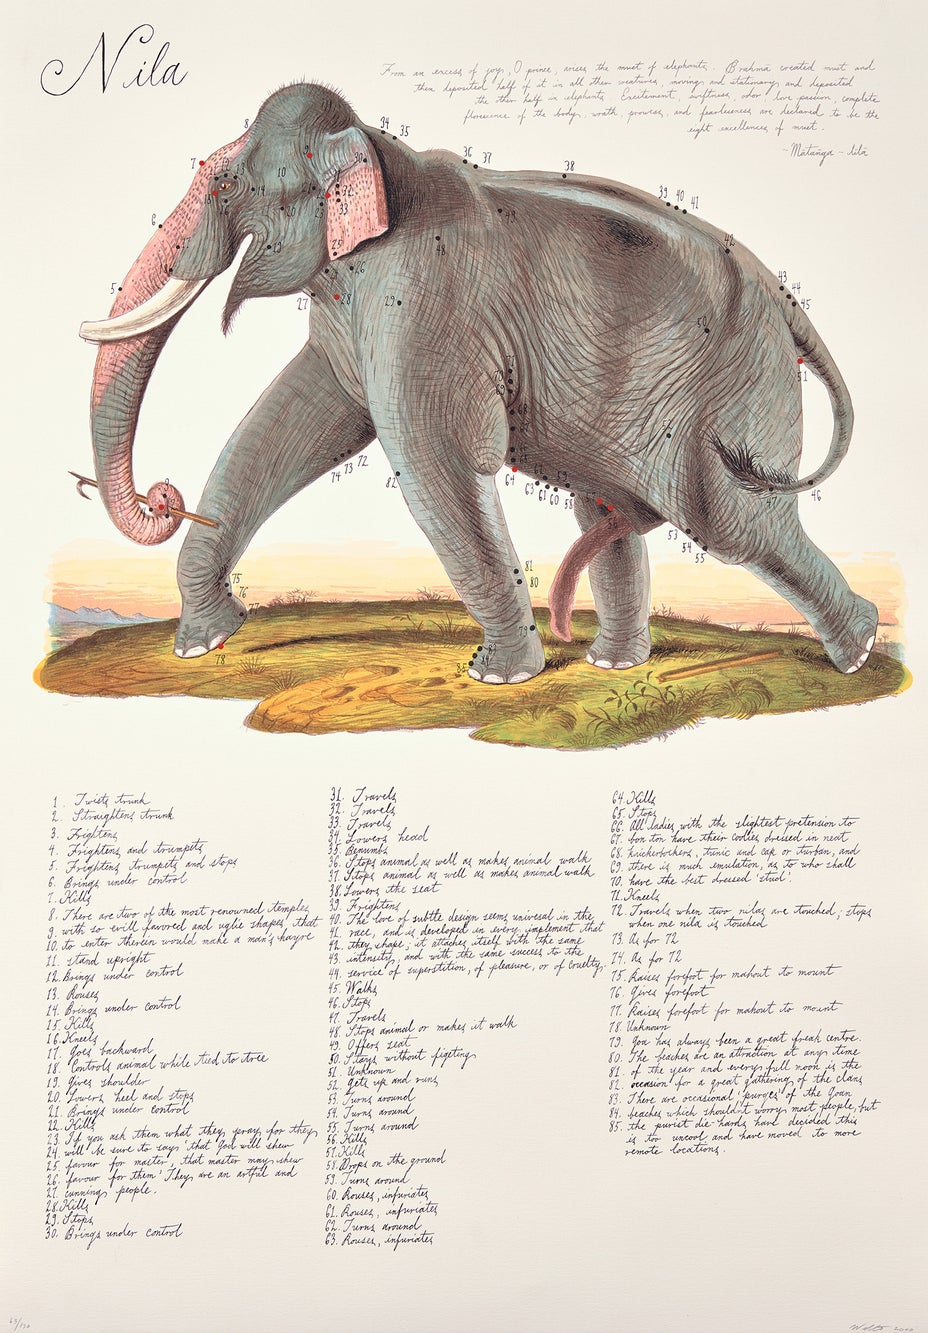 Nila
From an excess of joy, O prince, arises the must of elephants. Brahma created must and
then deposited half of it in all other creatures, moving and stationary, and deposited
the other half in elephants. Excitement, swiftness, odor, love passion, complete
florescence of the body, wrath, prowess, and fearlessness are declared to be the
eight excellences of must.
~Mātanga-līlā
1. Twists trunk
2. Straightens trunk
3. Frightens
4. Frightens and trumpets
5. Frightens, trumpets and stops
6. Brings under control
7. Kills
8. There are two of the most renowned temples,
9. with so evill favored and uglie shapes, that
10. to enter therein would make a man's hayre
11. stand upright
12. Brings under control
13. Rouses
14. Brings under control
15. Kills
16. Kneels
17. Goes backward
18. Controls animal while tied to tree
19. Gives shoulder
20. Lowers heel and stops
21. Brings under control
22. Kills
23. If you ask them what they pray for they
24. will be sure to say: 'that God will shew
25. favour for master, that master may shew
26. favour for them' They are an artful and
27. cunning people.
28. Kills
29. Stops
30. Brings under control
31. Travels
32. Travels
33. Travels
34. Lowers head
35. Benumbs
36. Stops animal as well as makes animal walk
37. Stops animal as well as makes animal walk
38. Lowers the seat
39. Frightens
40. The love of subtle design seems universal in the
41. race, and is developed in every implement that
42. they shape; it attaches itself with the same
43. intensity, and with the same success to the
44. service of superstition, of pleasure, or of cruelty,
45. Walks
46. Stops
47. Travels
48. Stops animal or makes it walk
49. Offers seat
50. Stays without figeting
51. Unknown
52. Gets up and runs
53. Turns around
54. Turns around
55. Turns around
56. Kills
57. Kills
58. Drops on the ground
59. Turns around
60. Rouses, infuriates
61. Rouses, infuriates
62. Turns around
63. Rouses, infuriates
64. Kills
65. Stops
66. All ladies with the slightest pretension to
67. bon ton have their coolies dressed in neat
68. knickerbockers, tunic and cap or turban, and
69. there is much emulation, as to who shall
70. have the best dressed 'stud'.
71. Kneels
72. Travels when two nilas are touched; stops
when one nila is touched
73. As for 72
74. As for 72
75. Raises forefoot for mahout to mount
76. Gives forefoot
77. Raises forefoot for mahout to mount
78. Unknown
79. Goa has always been a great freak centre.
80. The beaches are an attraction at any time
81. of the year and every full moon is the
82. occasion for a great gathering of the clans
83. There are occasional 'purges' of the Goan
84. beaches which shouldn't worry most people, but
85. the purist die hards have decided this
is too uncool and have moved to more
remote locations.
63/150
2000